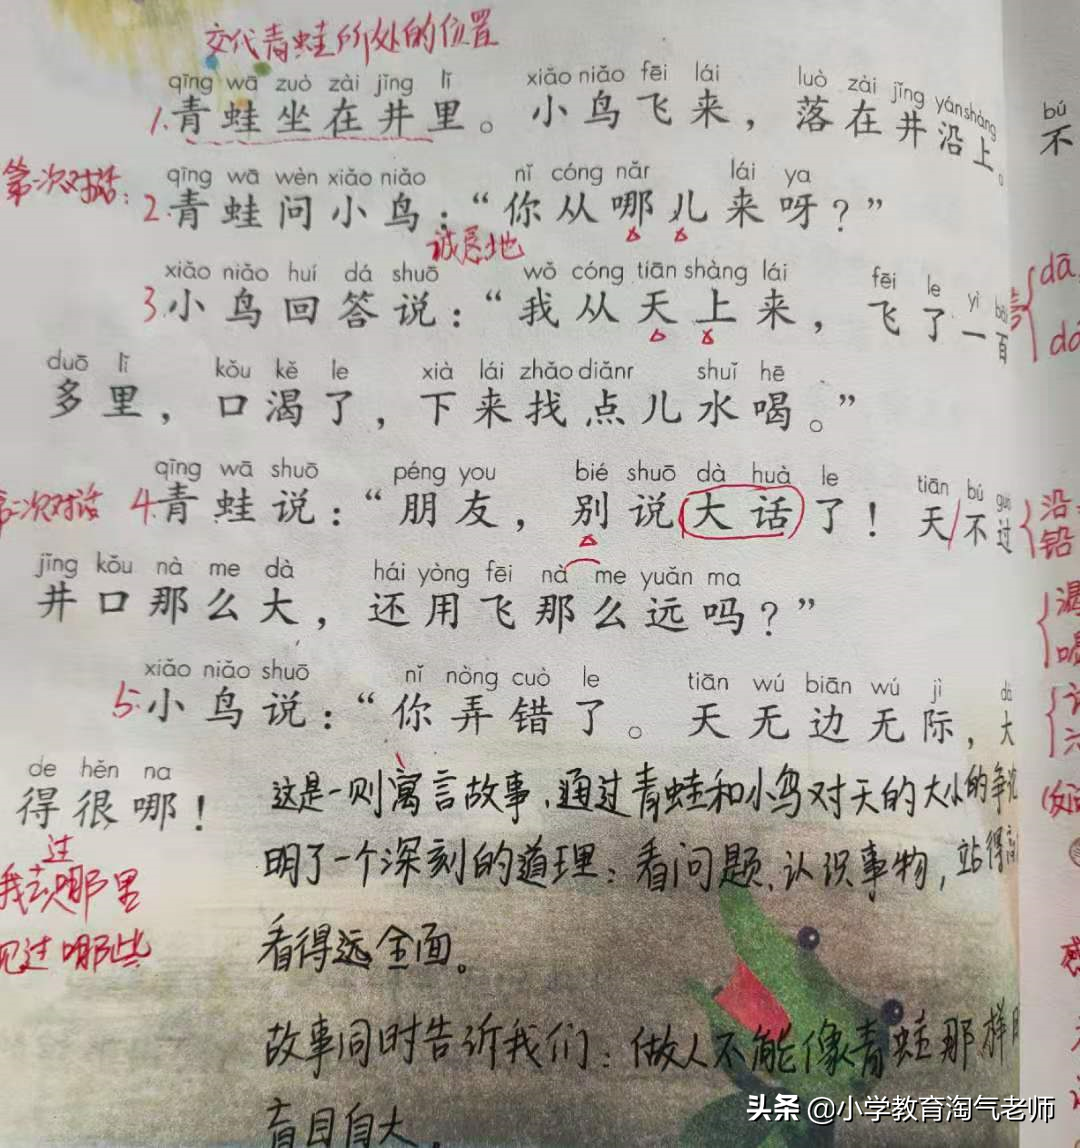 交代青蛙所处的位置
qīng wā zuò zài jǐng lǐ xiǎo niǎo fēi lái luò zài jǐng yán shàng
1.青蛙坐在井里。小鸟飞来，落在井沿上。
bú
不
第一次对话：
qīng wā wèn xiǎo niǎo nǐ cóng nǎr lái ya
2.青蛙问小鸟：“你从哪儿来呀？”
诚恳地
xiǎo niǎo huí dá shuō wǒ cóng tiān shàng lái fēi le yì bǎi
3.小鸟回答说：“我从天上来，飞了一百
dā
duō lǐ kǒu kě le xià lái zhǎo diǎnr shuǐ hē
多里，口渴了，下来找点儿水喝。”
qīng wā shuō péng you bié shuō dà huà le tiān bú guò
第二次对话
4.青蛙说：“朋友，别说大话了！天不过
沿
铅
jǐng kǒu nà me dà hái yòng fēi nà me yuǎn ma
井口那么大，还用飞那么远吗？”
渴
喝
xiǎo niǎo shuō nǐ nòng cuò le tiān wú biān wú jì dà
5.小鸟说：“你弄错了。天无边无际，大
de hěn na
得很哪！
这是一则寓言故事，通过青蛙和小鸟对天的大小的争论
明了一个深刻的道理：看问题、认识事物，站得高
看得远全面。
过
我去哪里
见过哪些
故事同时告诉我们：做人不能像青蛙那样
盲目自大。
头条 @小学教育淘气老师